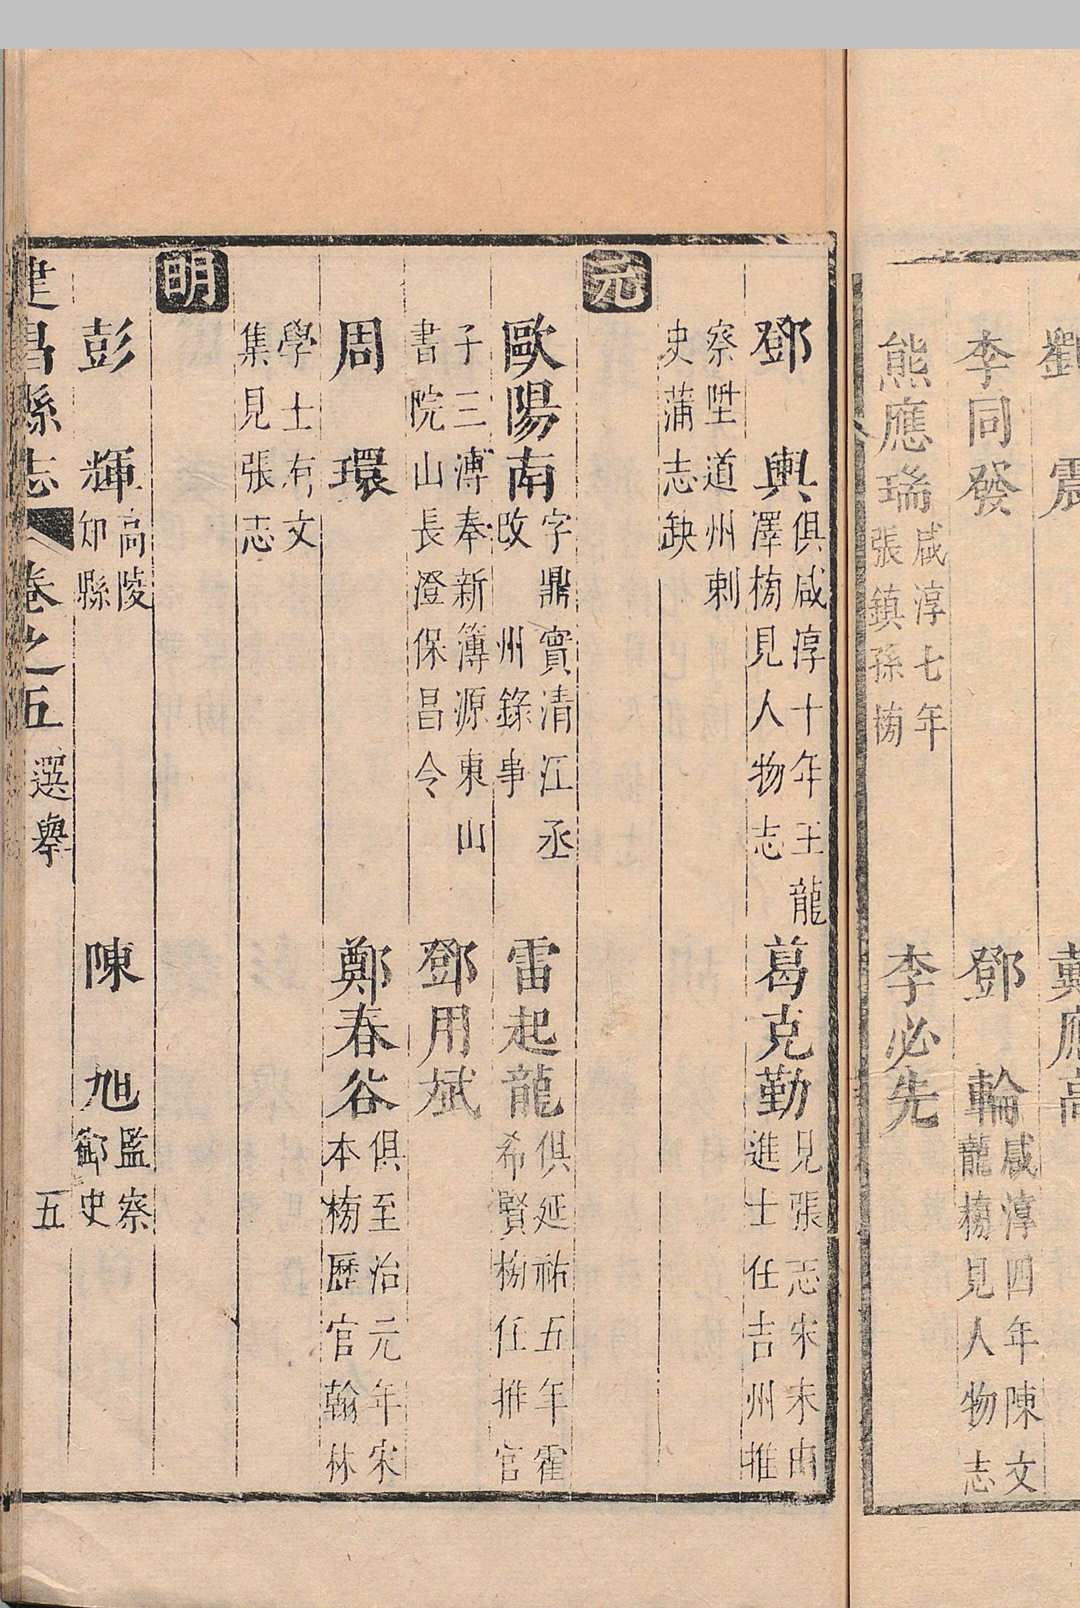 劉　震　戴應高
李同發　鄧　輪咸淳四年陳文龍榜見人物志
熊應瑞咸淳七年張鎮孫榜　李必先
鄧　輿俱咸淳十年王龍澤榜見人物志　葛克勤見張志宋末由進士任吉州推
察陞道州刺史蒲志缺
元
歐陽南字鼎實清江丞改　州錄事　雷起龍俱延祐五年霍希賢榜任推官
子三溥奉新簿源東山書院山長澄保昌令　鄧用斌
周　環　鄭春谷俱至治元年宋本榜歷官翰林
學士有文集見張志
明
彭　輝高陵知縣　陳　旭監察御史
建昌縣志　卷之五　選舉　五